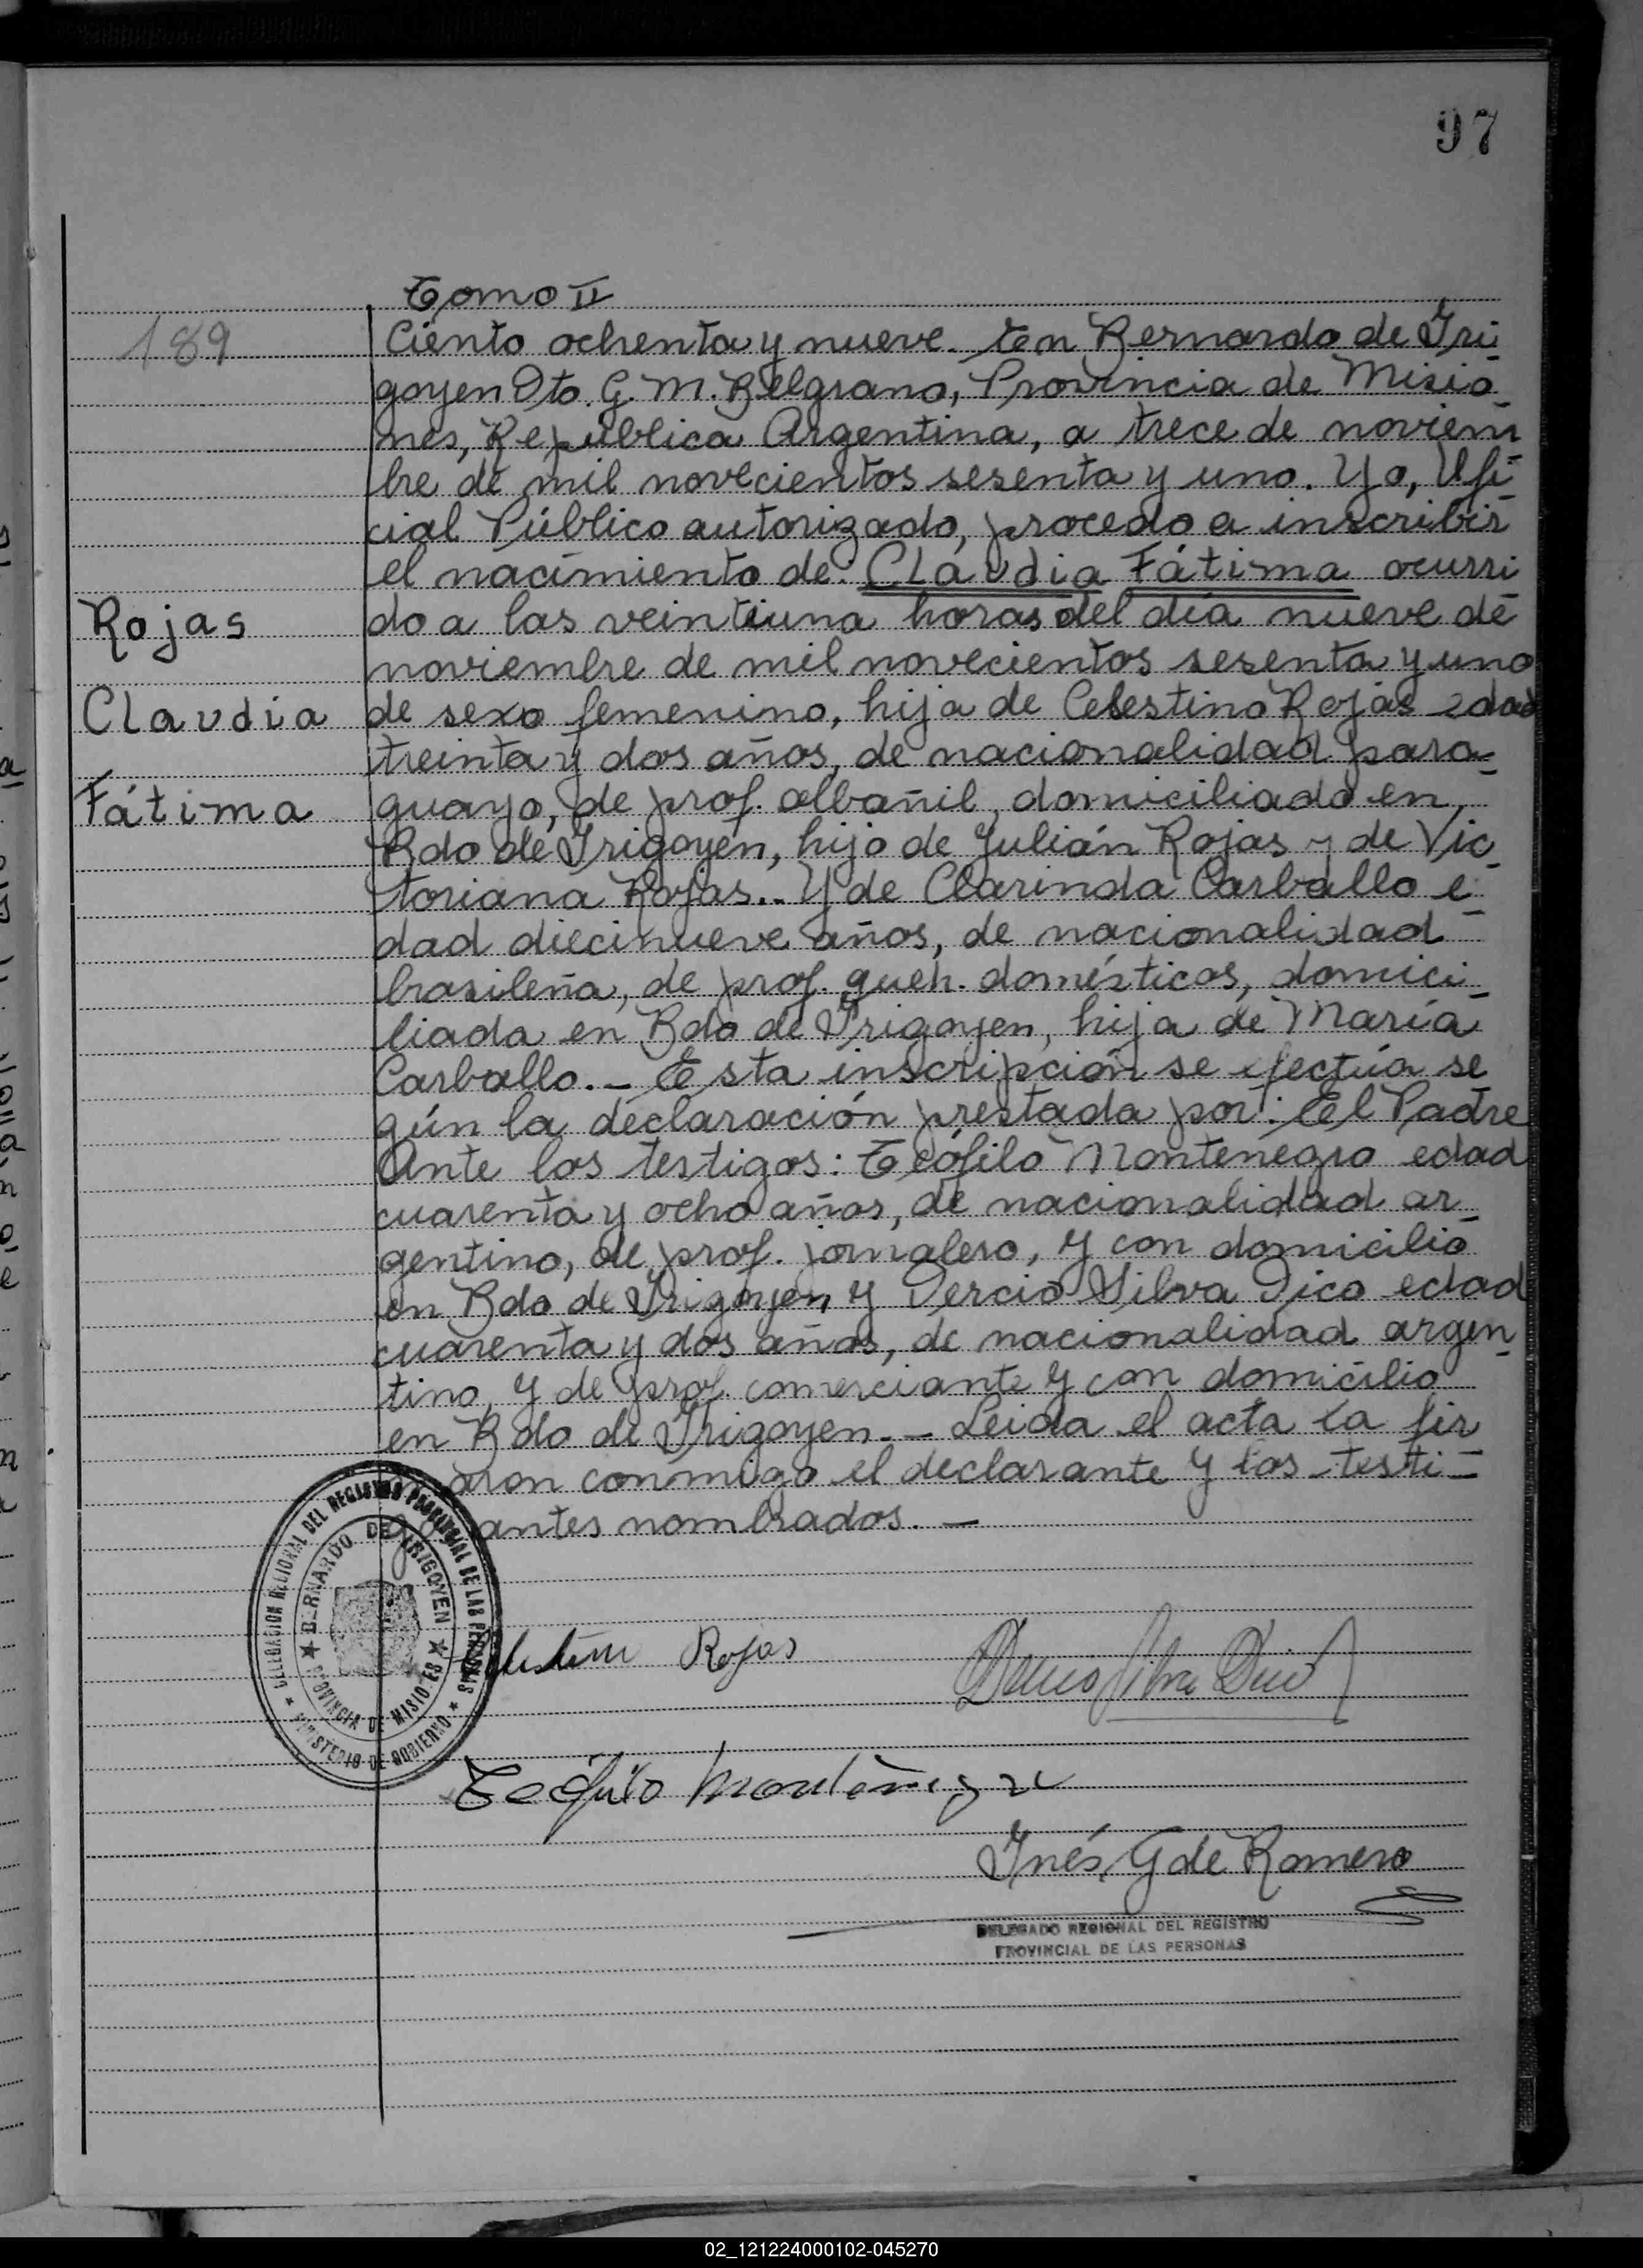 97
Tomo II
189
Ciento ochenta y nueve. En Bernardo de Iri
goyen Dto. G. M. Belgrano, Provincia de Misio
nes, República Argentina, a trece de noviem
bre de mil novecientos sesenta y uno. Yo, Ofi
cial Público autorizado, procedo a inscribir
el nacimiento de: CLaudia Fátima ocurri
Rojas
do a las veintiuna horas del día nueve de
noviembre de mil novecientos sesenta y uno
CLaudia
de sexo femenino, hija de Celestino Rojas edad
treinta y dos años, de nacionalidad para-
Fátima
guayo, de prof. albañil, domiciliado en
Bdo de Irigoyen, hijo de Julián Rojas y de Vic
toriana Rojas.. Y de Clarinda Carballo e-
dad diecinueve años, de nacionalidad
brasileña, de prof. queh. domésticos, domici-
liada en Bdo de Irigoyen, hija de María
Carballo. - Esta inscripción se efectúa se
gún la declaración prestada por: El Padre
Ante los testigos: Teófilo Montenegro edad
cuarenta y ocho años, de nacionalidad ar-
gentino, de prof. jornalero, y con domicilio
en Bdo de Irigoyen, y Dercio Silva Dico edad
cuarenta y dos años, de nacionalidad argen
tino, y de prof. comerciante y con domicilio
en Bdo de Irigoyen. - Leida el acta la fir
aron conmigo el declarante y los testi-
antes nombrados. -
DELEGACION REGIONAL DEL REGISTRO PROVINCIAL DE LAS PERSONAS
BERNARDO DE IRIGOYEN
PROVINCIA DE MISIONES
MINISTERIO DE GOBIERNO
Rojas
Teófilo Montenegro
Inés G de Romero
DELEGADO REGIONAL DEL REGISTRO
PROVINCIAL DE LAS PERSONAS
02_121224000102-045270